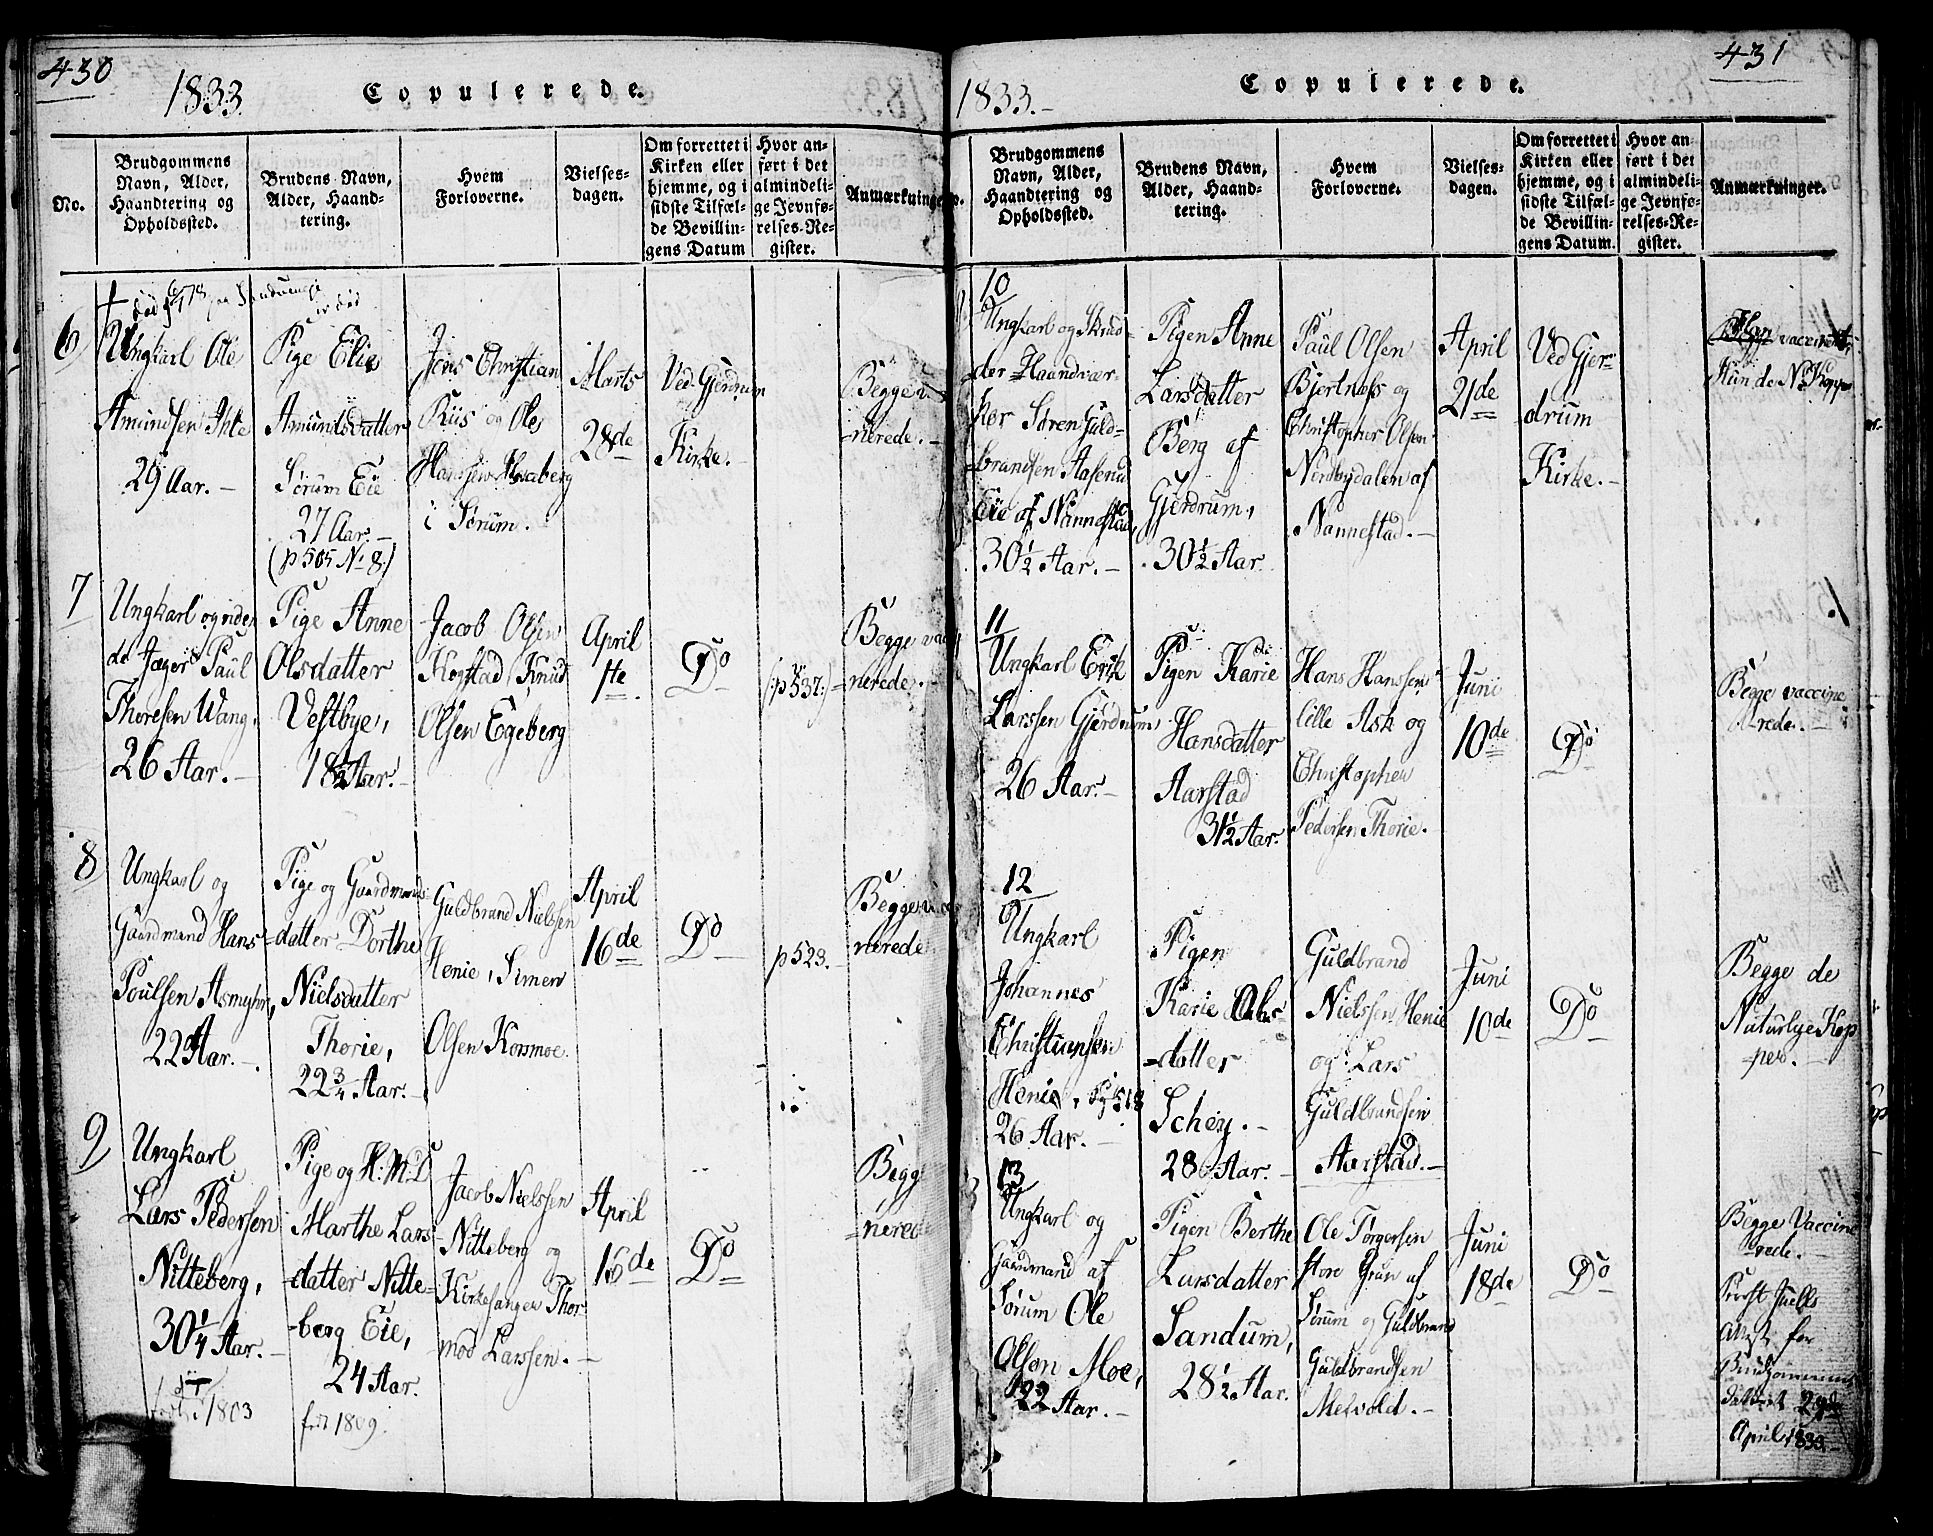 430
1833.
Copulerede.
No.
Brudgommens
Navn, Alder,
Haandtering og
Opholdssted.
Brudens Navn,
Alder, Haand-
tering.
Hvem
Forloverne.
Vielses-
dagen.
Om forrettet i
Kirken eller
hjemme, og i
sidste Tilfæl-
de Bevillin-
gens Datum
Hvor an-
ført i det
almindeli-
ge Jevnfø-
relses-Re-
gister.
Anmærkninge
6
Ungkarl Ole
Amundsen Ihle
29 Aar.
Pige Elie
Amundsdatter
Sørum Eie
27 Aar.
(p 505 No 8.)
Jens Christian
Riis og Ole
Hanssen
i Sørum.
Marts
28de
Ved Gjerdrum
Kirke.
Begge
nerede.
7
Ungkarl og
de Jæger Paul
Thoresen Wang,
26 Aar.
Pige Anne
Olsdatter
Vestbye,
18½ Aar.
Jacob Olsen
Kogstad, Knud
Olsen Egeberg
April
1te
Do
(:p 537:)
Begge
nerede.
8
Ungkarl og
Gaardmand Hans
Poulsen Asmyhr,
22 Aar.
Pige og Gaardmands
datter Dorthe
Nielsdatter
Thorie,
22¾ Aar.
Guldbrand Nielssen
Henie, Simen
Olsen Korsmoe.
April
16de
Do
p 523.
Begge
nerede.
9
Ungkarl
Lars Pedersen
Nitteberg,
30¼ Aar.
1803
Pige og H:M:D
Marthe Lars
datter Nitte-
berg Eie,
24 Aar.
1809.
Jacob Nielssen
Nitteberg og
Kirkesanger Thor
mod Larssen.
April
16de
Do
Begge
nerede
431
1833.
Copulerede.
Brudgommens
Navn, Alder,
Haandtering og
Opholdssted.
Brudens Navn,
Alder, Haand-
tering.
Hvem
Forloverne.
Vielses-
dagen.
Om forrettet i
Kirken eller
hjemme, og i
sidste Tilfæl-
de Bevillin-
gens Datum.
Hvor an-
ført i det
almindeli-
ge Jevnfø-
relses-Re-
gister.
Anmærkninger.
10
Ungkarl og Skræd-
der-Haandvær-
ker Søren Guld-
brandsen Aaserud
Eie af Nannestad,
30½ Aar.
Pigen Anne
Larsdatter
Berg af
Gjerdrum,
30½ Aar.
Paul Olsen
Bjertness og
Christopher Olsen
Nordbydalen af
Nannestad.
April
21de
Ved Gjer-
drum
Kirke.
vaccineret,
Hun de N. Kopper
11
Ungkarl Erik
Larssen Gjerdrum,
26 Aar.
Pigen Karie
Hansdatter
Aarstad
31½ Aar.
Hans Hanssen
lille Ask og
Christopher
Pedersen Thorie.
Juni
10de
Do
Begge vaccine
rede.
12
Ungkarl
Johannes
Christiansen
Henie, 518
26 Aar.
Pigen
Karie Ols-
datter
Schey.
28 Aar.
Guldbrand
Nielssen Henie
og Lars
Guldbrandsen
Aarstad.
Juni
10de
Do
Begge de
Naturlige Kop
per.
13
Ungkarl og
Gaardmand af
Sørum Ole
Olson Moe,
22 Aar.
Pigen Berthe
Larsdatter
Sandum,
28½ Aar.
Ole Torgersen
store af
Sørum og Guldbrand
Guldbrandsen
Melvold.
Juni
18de
Do
Begge Vaccine
rede.
Juells
Attest for
Brudgommen
dateret 29de
April 1833.